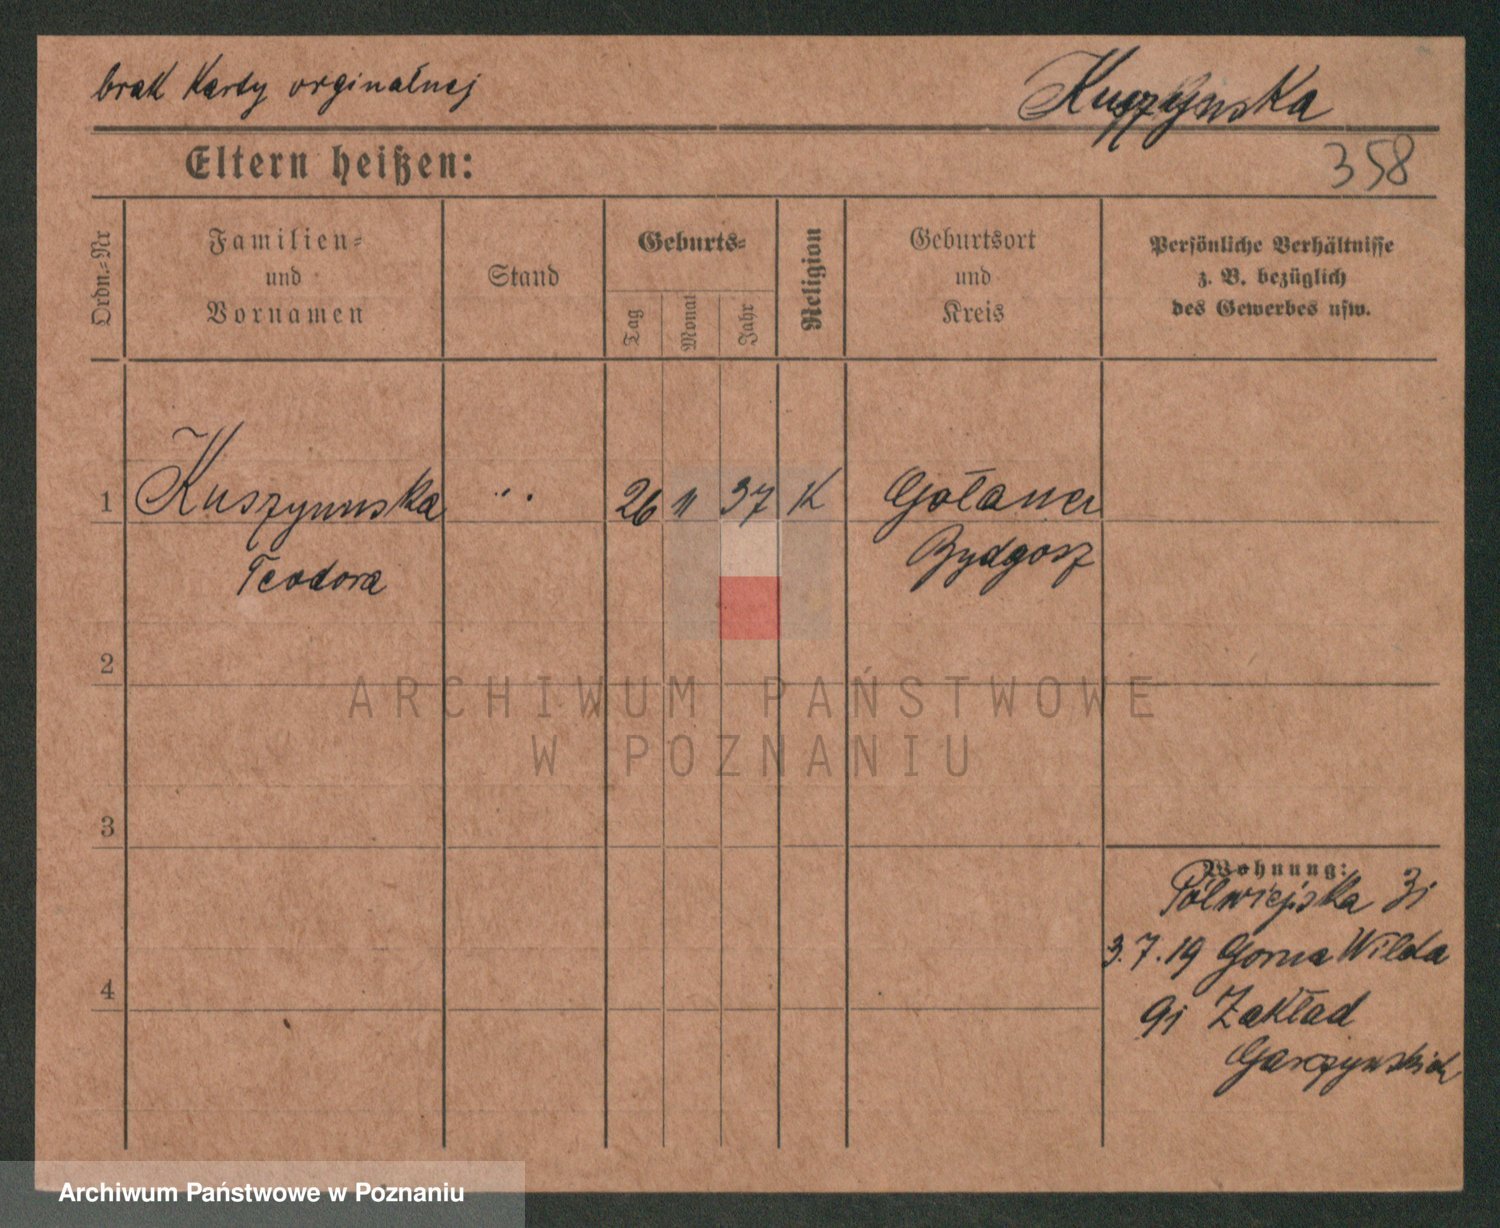 brak Karty orginalnej
Kuszynska
Eltern heißen:
358
Ordn.=Nr
Familien=
und
Vornamen
Stand
Geburts=
Tag
Monat
Jahr
Religion
Geburtsort
und
Kreis
Persönliche Verhältnisse
z. B. bezüglich
des Gewerbes usw.
1
Kuszynnska
26 11 37 K
Bydgosz
Teodora
2
ARCHIWUM PAŃSTWOWE
W POZNANIU
3
Wohnung:
Półwiejska 31
3.7.19 Gorna Wilda
4
91 Zakład
Garczynskich
Archiwum Państwowe w Poznaniu